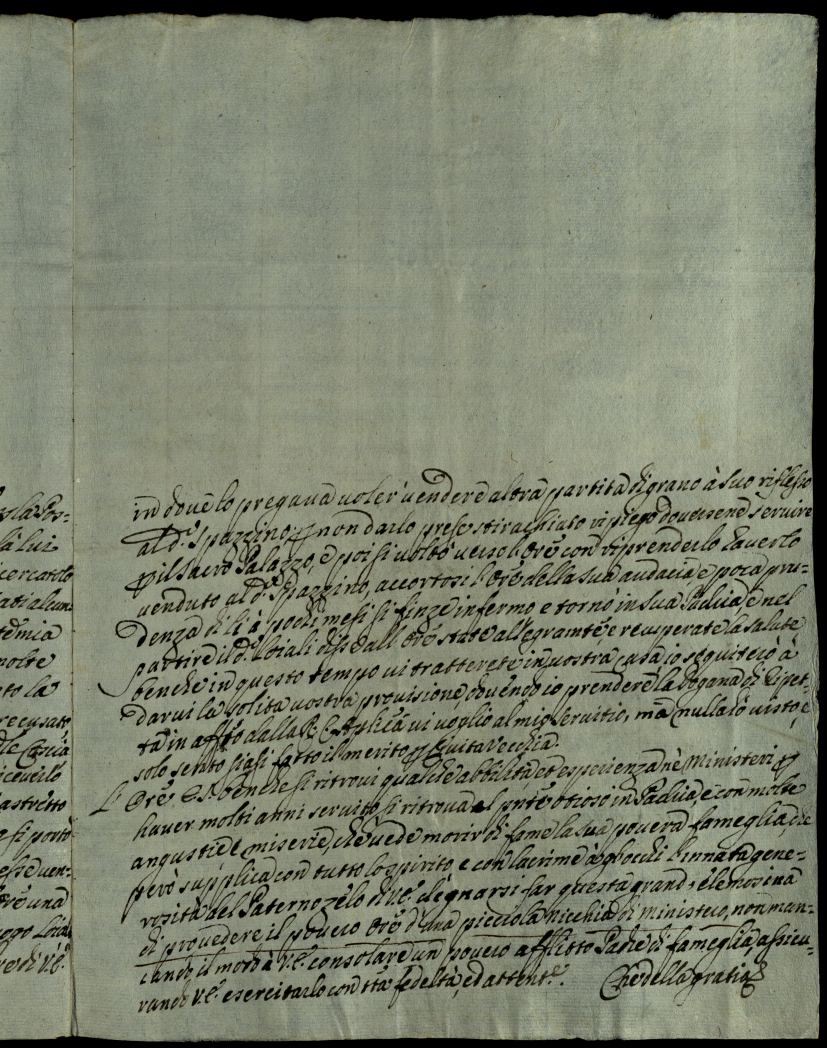 in dove lo pregava voler vendere altra partita di grano à suo riflesso
al d.º Spazzino, non darlo prese stirachiato ripiego dovesene servire
p il Sacro Palazzo, e poi si voltò verso l'Ore con riprenderlo haverlo
venduto al d.º Spazzino, accortosi l'Ore della sua audacia e poca pru-
denza di lì à pochi mesi si finze infermo e tornò in sua Padria, e nel
partire il d.º disse all'Ore state allegramte e recuperate la salute
benche in questo tempo vi tratterete in vostra casa io seguiterò à
darvi la solita vostra provisione, dovendo io prendere la Dogana di Ripet-
ta in affto dalla R. C. Aplica vi voglio al mio servitio, mà nulla hò visto, e
solo sento siasi fatto il merito p Civita Vecchia.
L'Ore E.S. benche si ritrovi qualche abbilità, et esperienza nè Ministeri p
haver molti anni servito si ritrova al pnte otioso in Padria, e con molte
angustie e miserie, che vede morir di fame la sua povera fameglia che
però supplica con tutto lo spirito e con lacrime à gl'occhi l'innata gene-
rosità del Paterno zelo di V.E. degnarsi far questa grand'elemosena
di provedere il povero Ore d'una picciola nicchia di ministero, non man-
cando il modo à V.E. consolare un povero afflitto Padre di fameglia, assicu-
rando V.E. esercitarlo con tta fedeltà, et attent.e. Che della gratia
là lui
ricercatolo
molte
to la
recusato
riceverlo
astretto
si portò
Ore una
re di V.E.